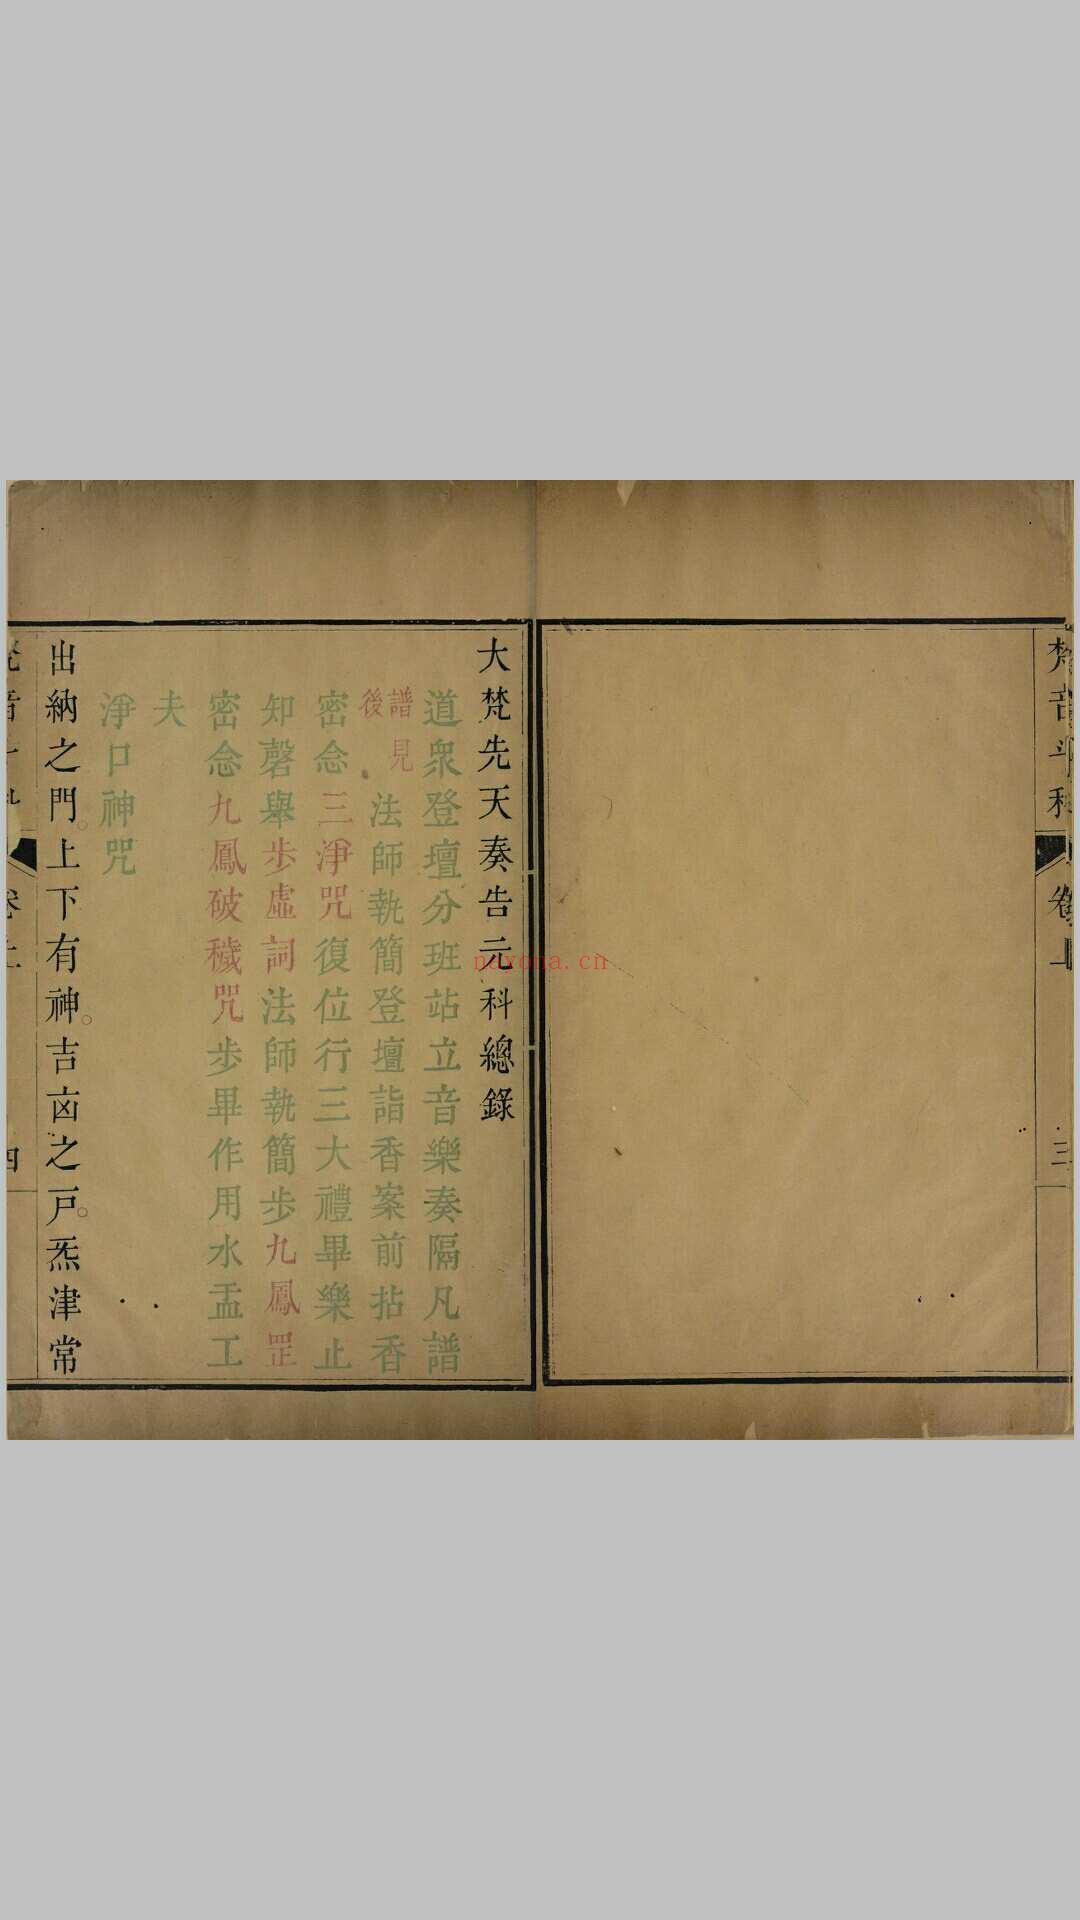 梵音斗科
卷上
三
大梵先天奏告元科總錄
道衆登壇分班站立音樂奏隔凡譜
譜見
後
法師執簡登壇詣香案前拈香
密念三淨咒復位行三大禮畢樂止
知磬舉步虛詞法師執簡步九鳳罡
密念九鳳破穢咒步畢作用水盂工
夫
淨口神咒
出納之門。上下有神。吉凶之戸。炁津常
nayona.cn